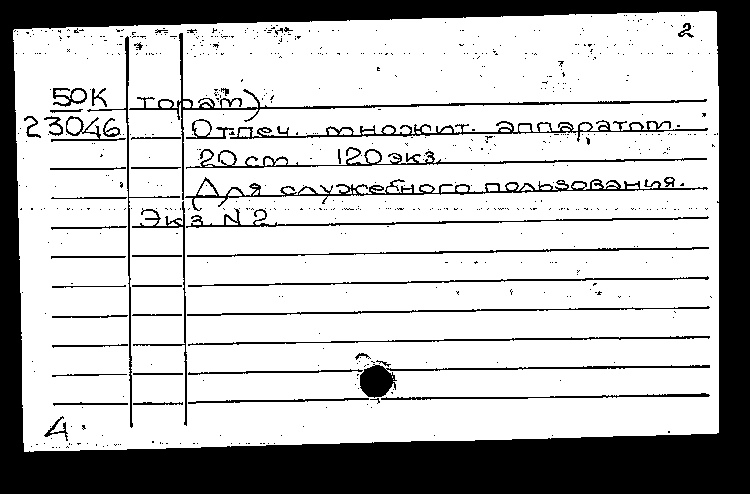 2
50К торат).
23046 Отпеч. множит. аппаратом.
20 см. 120 экз.
Для служебного пользования.
Экз. N 2
4.